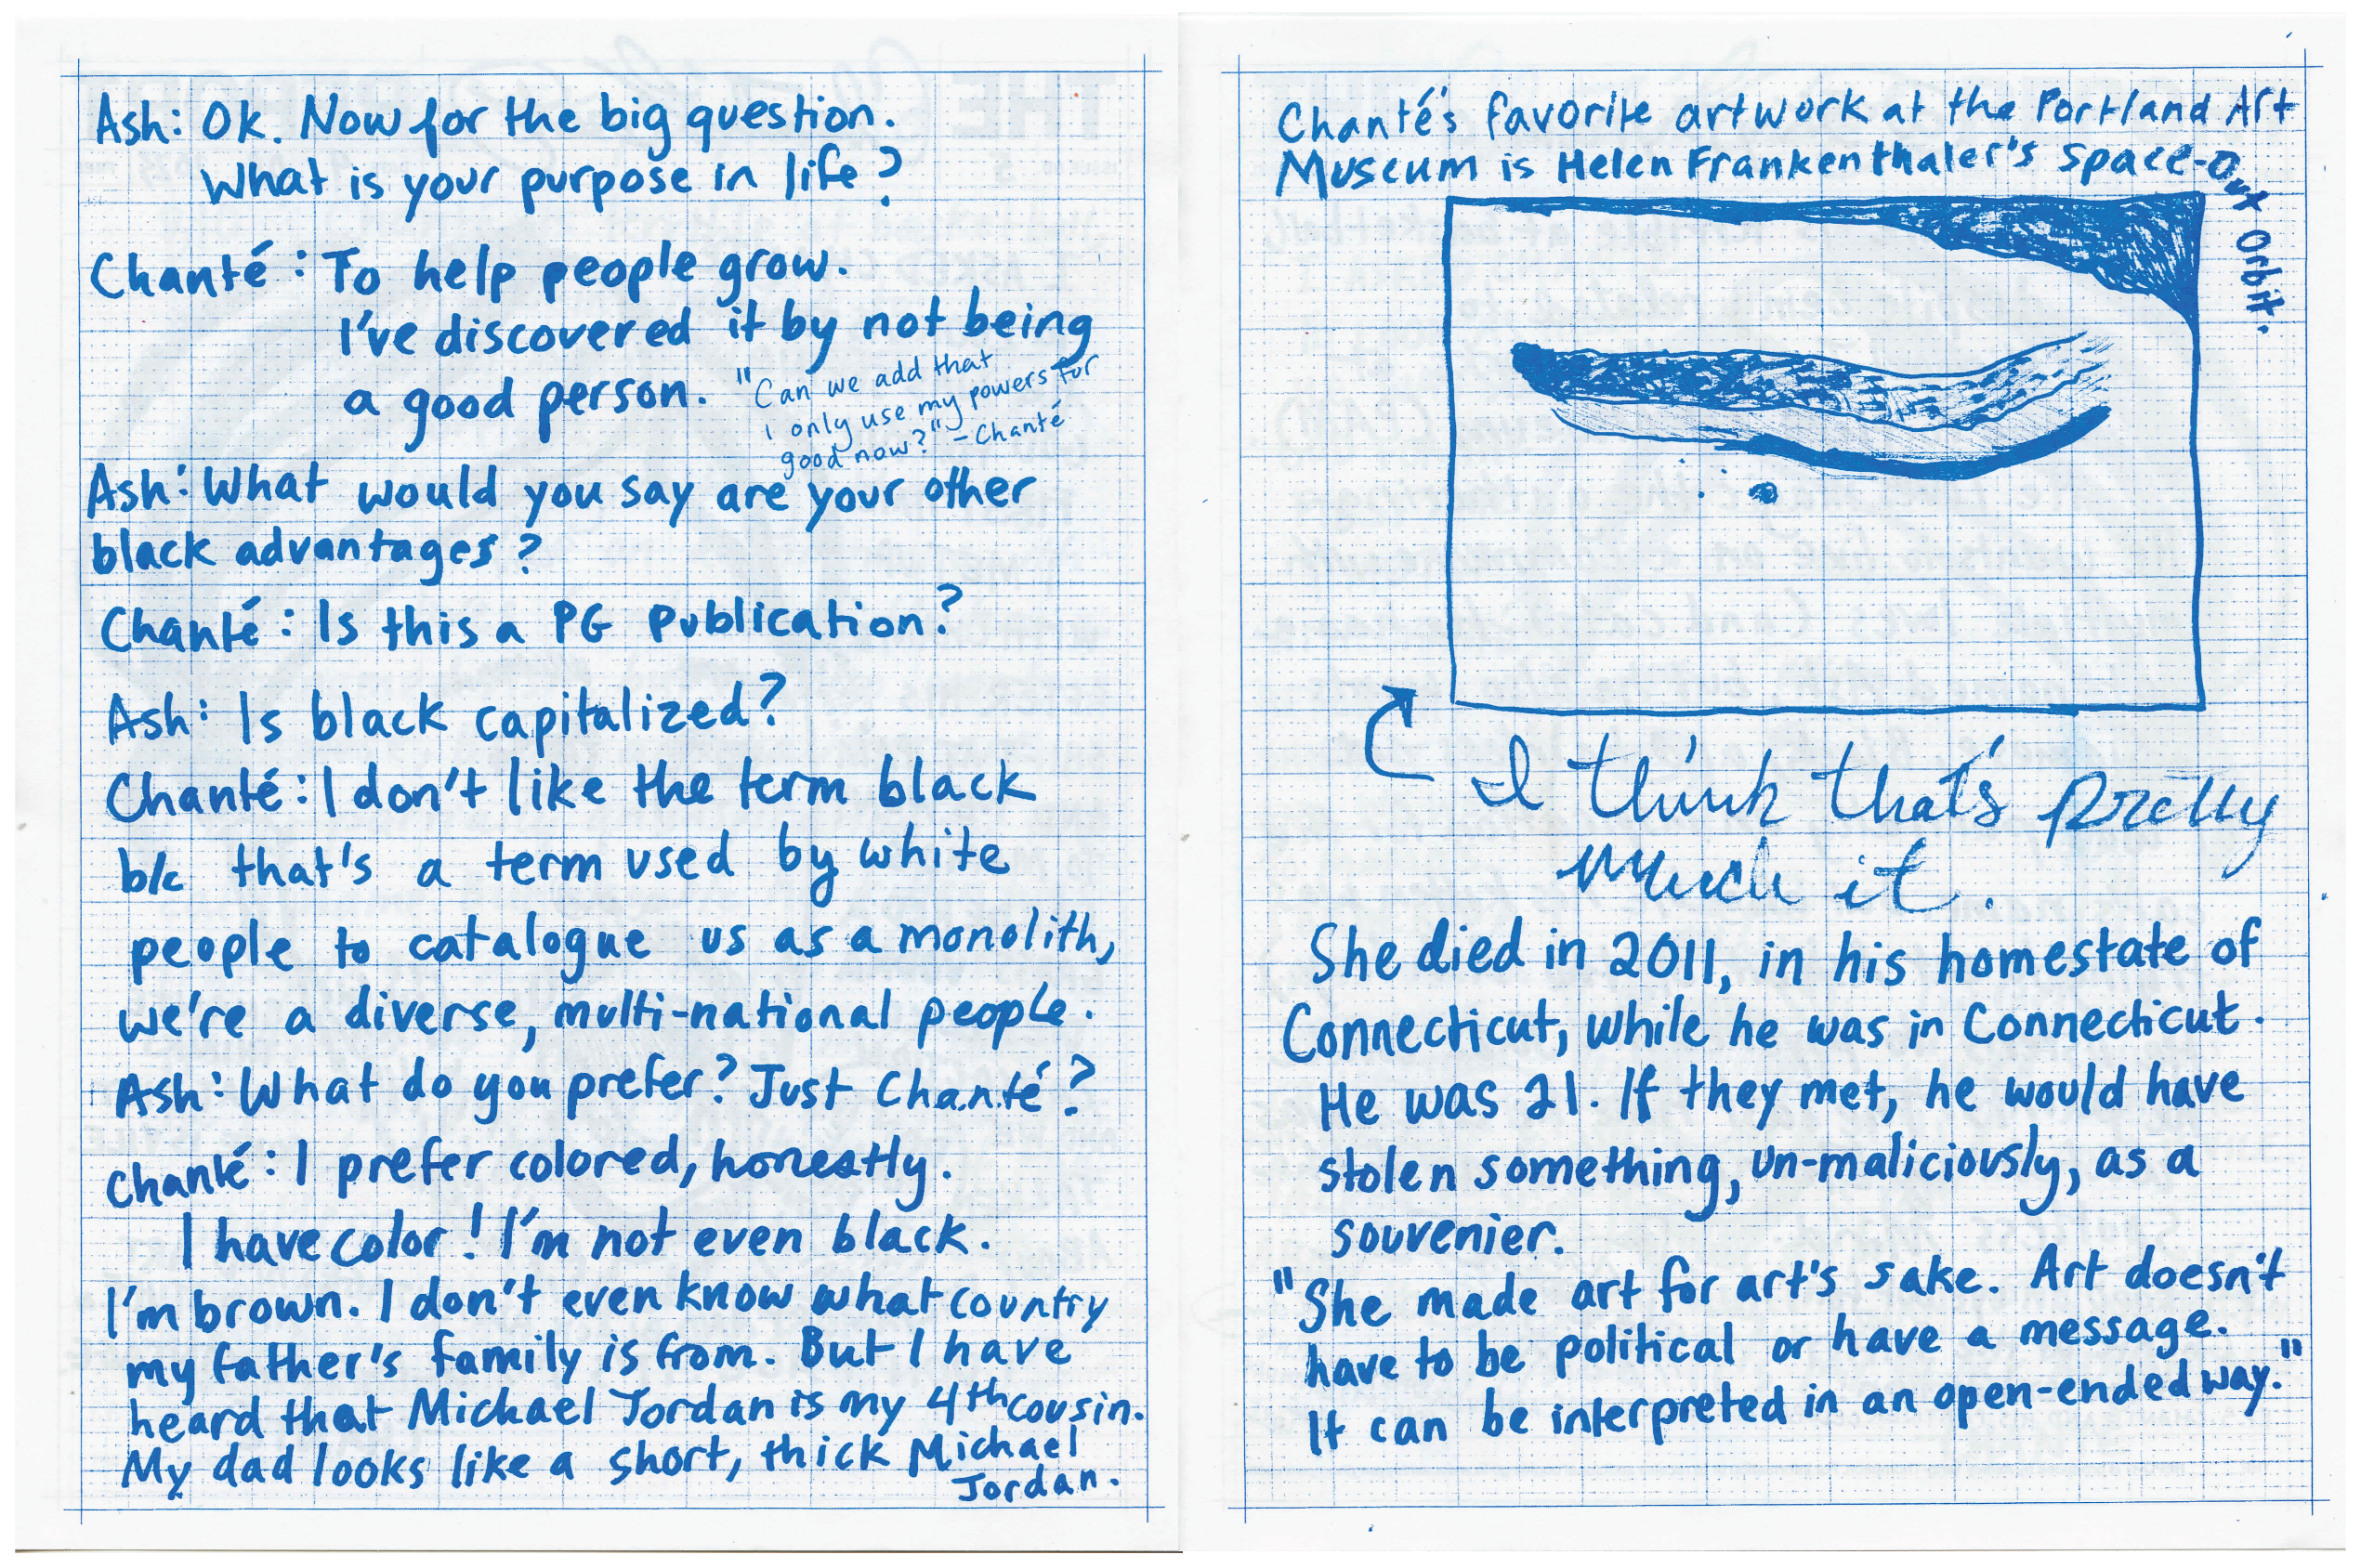 Ash: Ok. Now for the big question.
What is your purpose in life?
Chanté: To help people grow.
I've discovered it by not being
a good person.
"Can we add that
i only use my powers for
good now?" - Chanté
Ash: What would you say are your other
black advantages?
Chanté: Is this a PG publication?
Ash: Is black capitalized?
Chanté: I don't like the term black
b/c that's a term used by white
people to catalogue us as a monolith,
we're a diverse, multi-national people.
Ash: What do you prefer? Just Chanté?
Chanté: I prefer colored, honestly.
I have color! I'm not even black.
I'm brown. I don't even know what country
my father's family is from. But I have
heard that Michael Jordan is my 4th cousin.
My dad looks like a short, thick Michael
Jordan.
Chanté's favorite artwork at the Portland Art
Museum is Helen Frankenthaler's Space-Out Orbit.
I think that's pretty
much it.
She died in 2011, in his homestate of
Connecticut, while he was in Connecticut.
He was 21. If they met, he would have
stolen something, un-maliciously, as a
souvenier.
"She made art for art's sake. Art doesn't
have to be political or have a message.
It can be interpreted in an open-ended way."